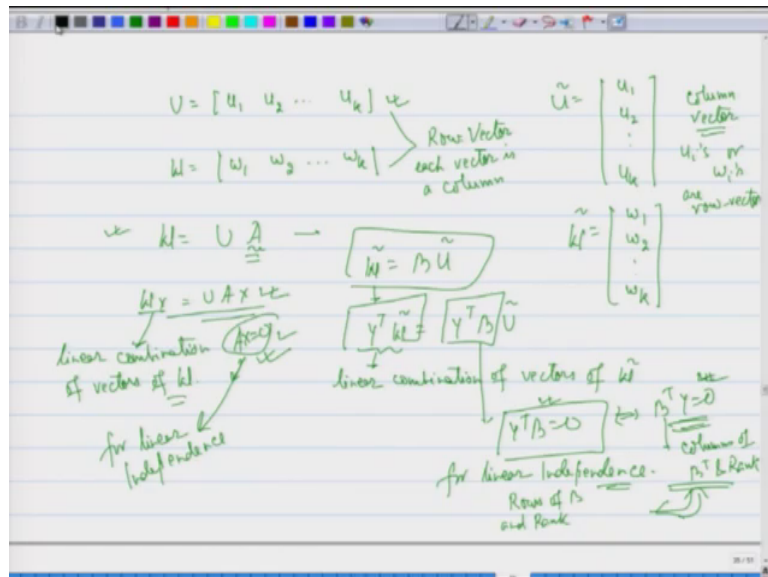 U = [ u₁ u₂ ... u_k ]
W = [ w₁ w₂ ... w_k ]
Row Vector
each vector is
a column
Ũ = [ u₁
u₂
⋮
u_k ]
column
vector
u_i's or
w_i's
are row-vector
W̃ = [ w₁
w₂
⋮
w_k ]
W = U A →
W̃ = B Ũ
W x = U A x
Ax = 0
linear combination
of vectors of W.
for linear
Independence
yᵀ W̃ = yᵀ B Ũ
linear combination of vectors of W̃
yᵀB = 0 ↔ Bᵀ y = 0
for linear Independence.
Rows of B
and Rank
columns of
Bᵀ & Rank
35/51